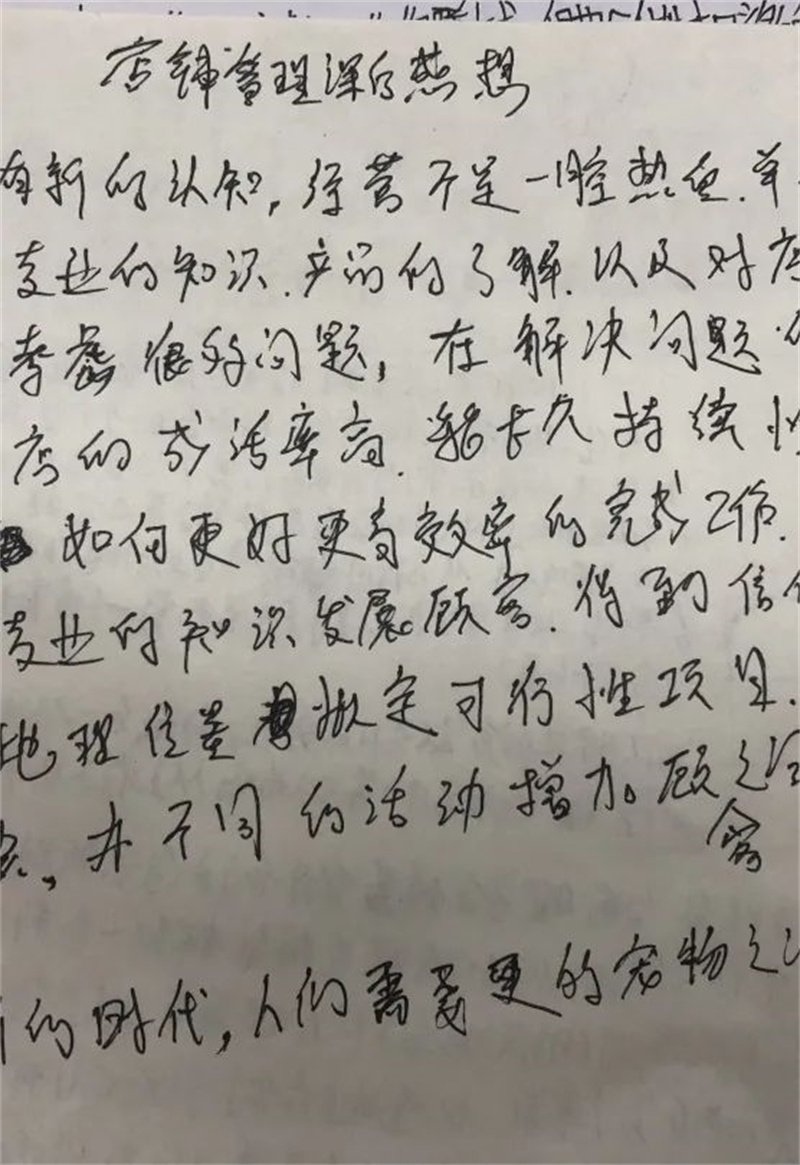 店铺管理深的感想
有新的认知,经营不是一腔热血.单
专业的知识.产品的了解.以及对店
李磊很多问题,在解决问题
店的成活率高.能长久持续
如何更好更有效率的完成工作.
专业的知识发展顾客.得到信
地理位置拟定可行性项目.
办不同的活动增加顾客之
的时代,人们需要更的宠物之